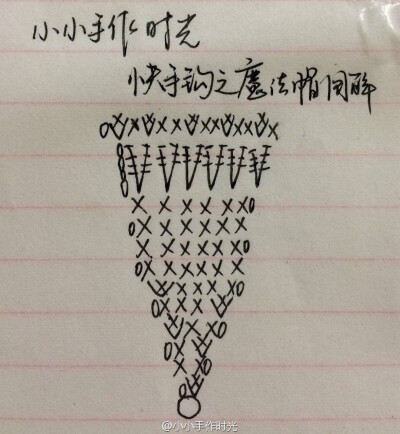 小小手作时光
快手钩之魔法帽图解
@小小手作时光